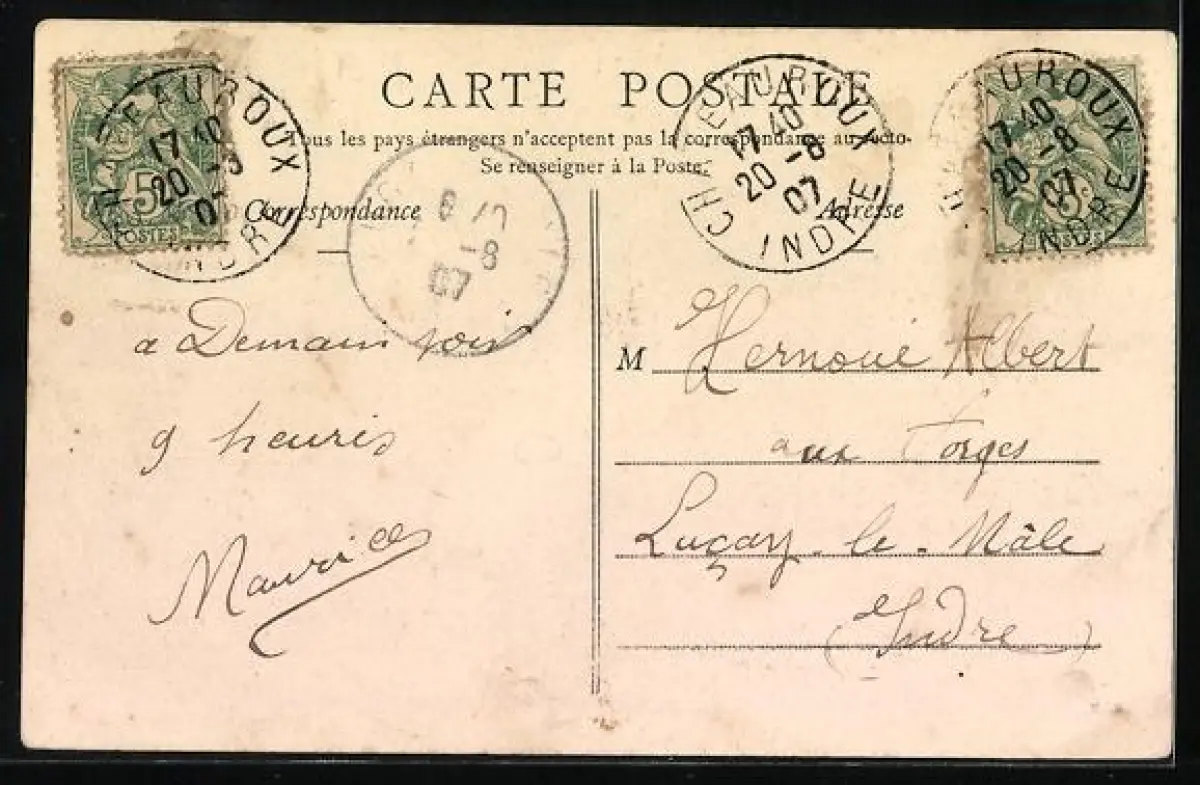 CARTE POSTALE
Tous les pays étrangers n'acceptent pas la correspondance au recto.
Se renseigner à la Poste.
Correspondance
Adresse
CHATEAUROUX
17 40
20 -8
07
INDRE
CHATEAUROUX
17 40
20 -8
07
INDRE
CHATEAUROUX
17 40
20 -8
07
INDRE
-8
07
5
POSTES
5
POSTES
a Demain soir
9 heures
Maurice
M Hernoué Albert
aux Forges
Luçay-le-Mâle
(Indre)